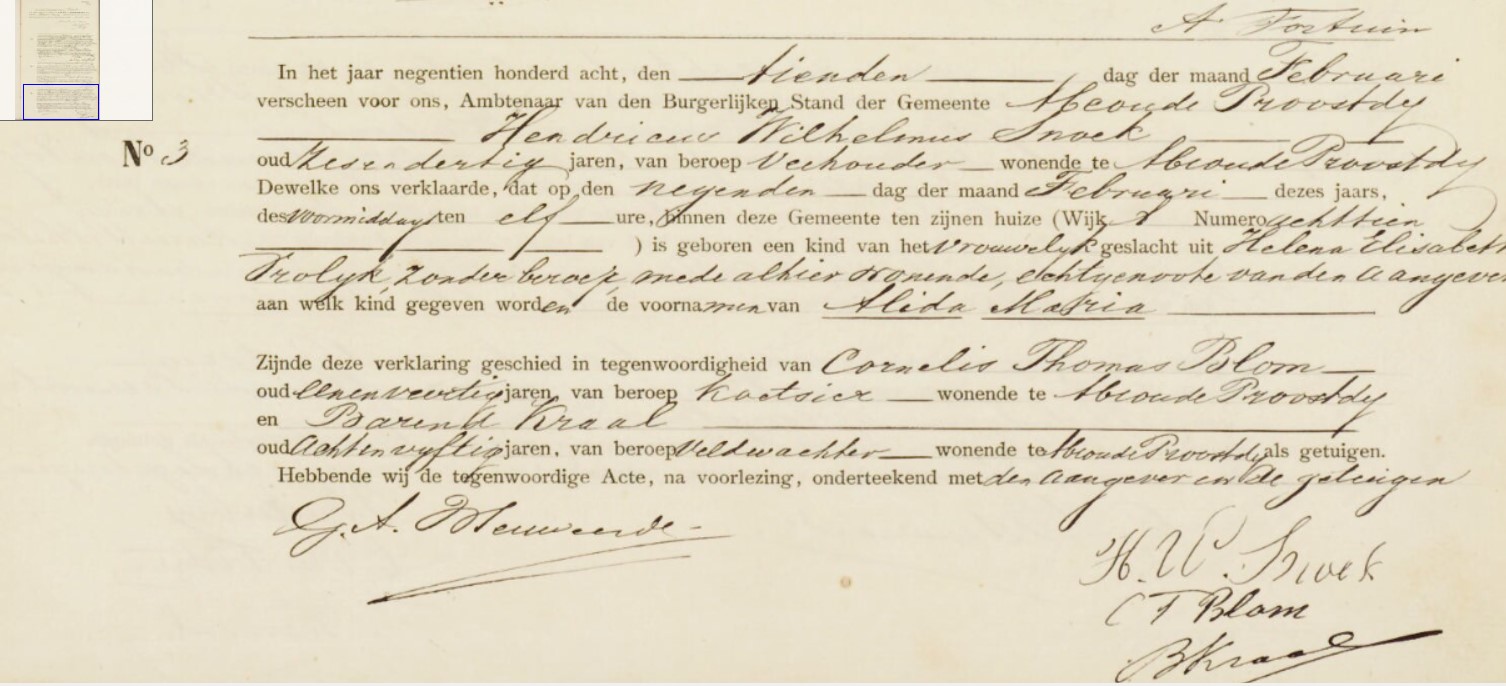 A Fortuin
In het jaar negentien honderd acht, den tienden dag der maand Februari
verscheen voor ons, Ambtenaar van den Burgerlijken Stand der Gemeente Abcoude Proostdy
Hendricus Wilhelmus Snoek
No 3
oud Zesendertig jaren, van beroep Veehouder wonende te Abcoude Proostdy
Dewelke ons verklaarde, dat op den negenden dag der maand Februari dezes jaars,
des voormiddags ten elf ure, binnen deze Gemeente ten zijnen huize (Wijk Numero achttien
) is geboren een kind van het vrouwelyk geslacht uit Helena Elisabeth
Frolyk, zonder beroep, mede alhier wonende, echtgenoote van den aangever
aan welk kind gegeven worden de voornamen van Alida Maria
Zijnde deze verklaring geschied in tegenwoordigheid van Cornelis Thomas Blom
oud Eenenveertig jaren, van beroep Koetsier wonende te Abcoude Proostdy
en Barend Kraal
oud Achtenvyftig jaren, van beroep Veldwachter wonende te Abcoude Proostdy als getuigen.
Hebbende wij de tegenwoordige Acte, na voorlezing, onderteekend met den aangever en de getuigen
G. A.
H. W. Snoek
C T Blom
B Kraal